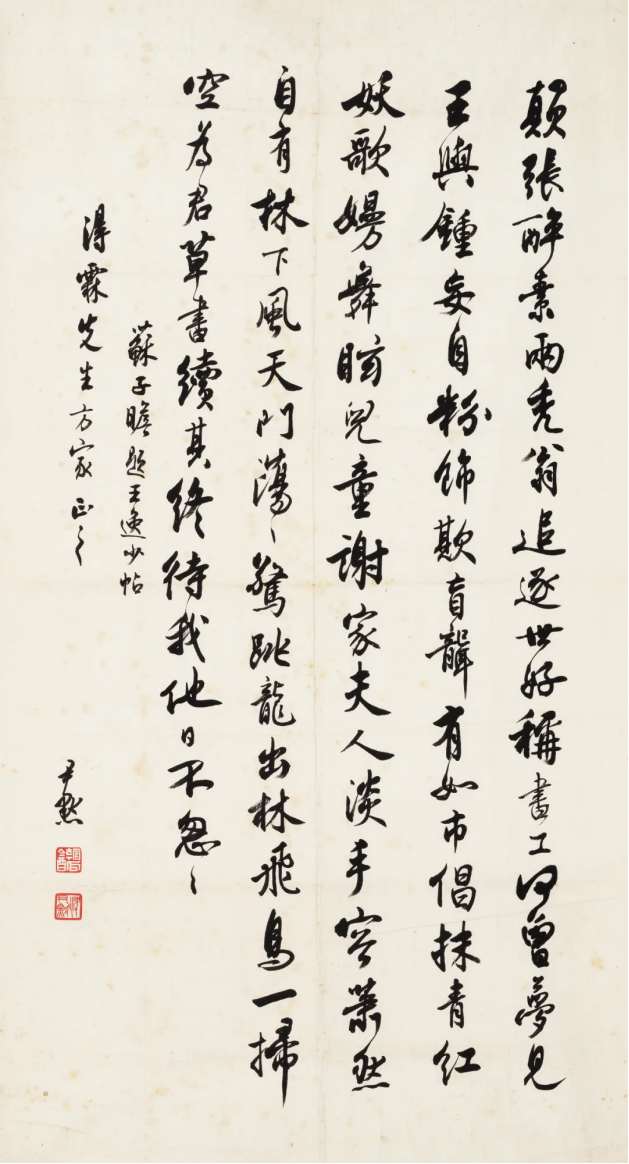 顛張醉素兩禿翁追逐世好稱書工何曾夢見
王與鍾妄自粉飾欺盲聾有如市倡抹青紅
妖歌嫚舞眩兒童謝家夫人淡丰容蕭然
自有林下風天門蕩〻驚跳龍出林飛鳥一掃
空為君草書續其終待我他日不怱〻
蘇子瞻題王逸少帖
得霖先生方家正之
尹默